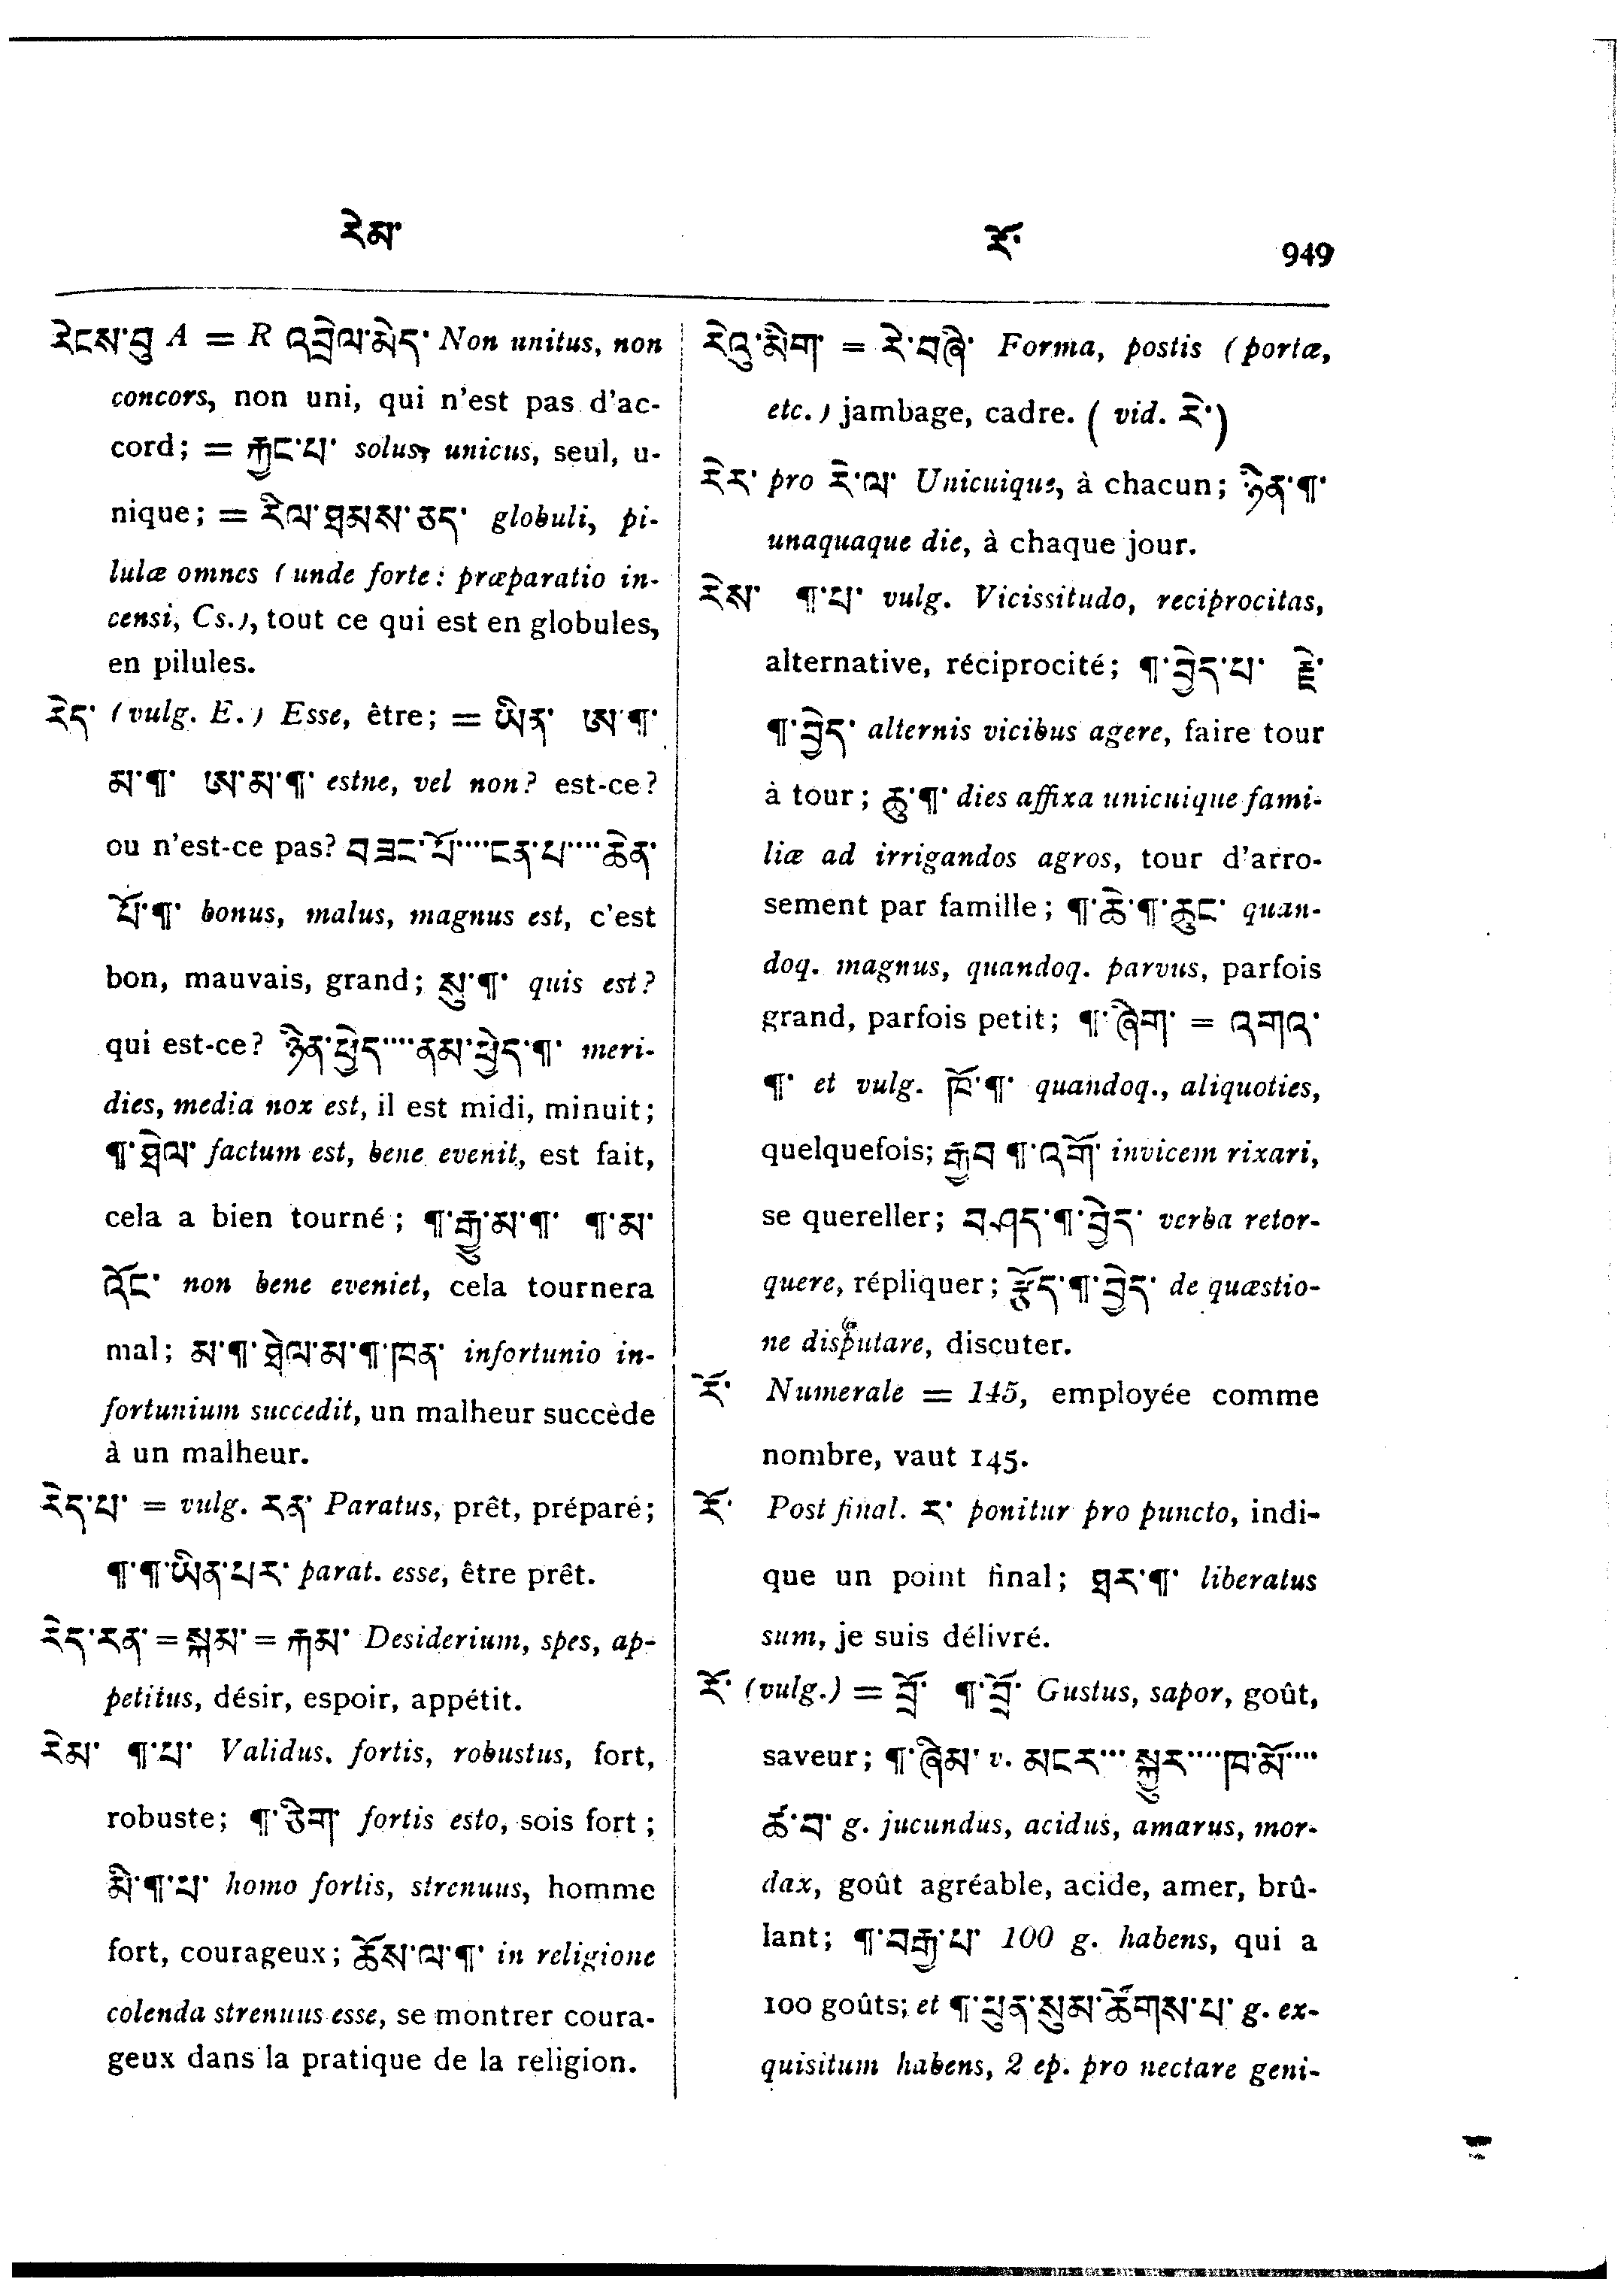 རེམ་
རོ་
949
རེངས་བུ A = R འབྲེལ་མེད་ Non unitus, non
concors, non uni, qui n'est pas d'ac-
cord; = རྐྱང་པ་ solus, unicus, seul, u-
nique; = རིལ་ཐམས་ཅད་ globuli, pi-
lulæ omnes (unde forte: præparatio in-
censi, Cs.), tout ce qui est en globules,
en pilules.
རེད་ (vulg. E.) Esse, être; = ཡིན་ ཨ་¶་
མ་¶་ ཨ་མ་¶་ estne, vel non? est-ce?
ou n'est-ce pas? བཟང་པོ་···ངན་པ་···ཆེན་
པོ་¶་ bonus, malus, magnus est, c'est
bon, mauvais, grand; སུ་¶་ quis est?
qui est-ce? ཉིན་ཕྱེད་···ནམ་ཕྱེད་¶་ meri-
dies, media nox est, il est midi, minuit;
¶་ཐེལ་ factum est, bene evenit, est fait,
cela a bien tourné; ¶་རྒྱུ་མ་¶་ ¶་མ་
འོང་ non bene eveniet, cela tournera
mal; མ་¶་ཐེལ་མ་¶་ཁན་ infortunio in-
fortunium succedit, un malheur succède
à un malheur.
རེད་པ་ = vulg. རན་ Paratus, prêt, préparé;
¶་¶་ཡིན་པར་ parat. esse, être prêt.
རེད་རན་ = སྐམ་ = རྐམ་ Desiderium, spes, ap-
petitus, désir, espoir, appétit.
རེམ་ ¶་པ་ Validus. fortis, robustus, fort,
robuste; ¶་ཅིག་ fortis esto, sois fort;
མི་¶་པ་ homo fortis, strenuus, homme
fort, courageux; ཆོས་ལ་¶་ in religione
colenda strenuus esse, se montrer coura-
geux dans la pratique de la religion.
རེའུ་མིག་ = རེ་བཞི་ Forma, postis (portæ,
etc.) jambage, cadre. (vid. རེ་)
རེར་ pro རེ་ལ་ Unicuique, à chacun; ཉིན་¶་
unaquaque die, à chaque jour.
རེས་ ¶་པ་ vulg. Vicissitudo, reciprocitas,
alternative, réciprocité; ¶་བྱེད་པ་ རྗེ་
¶་བྱེད་ alternis vicibus agere, faire tour
à tour; ཆུ་¶་ dies affixa unicuique fami-
liæ ad irrigandos agros, tour d'arro-
sement par famille; ¶་ཆེ་¶་ཆུང་ quan-
doq. magnus, quandoq. parvus, parfois
grand, parfois petit; ¶་ཞིག་ = འགའ་
¶་ et vulg. ཁོ་¶་ quandoq., aliquoties,
quelquefois; རྒྱབ ¶་འགོ་ invicem rixari,
se quereller; བཤད་¶་བྱེད་ verba retor-
quere, répliquer; རྩོད་¶་བྱེད་ de quæstio-
ne disputare, discuter.
རོ་ Numerale = 145, employée comme
nombre, vaut 145.
རོ་ Post final. ར་ ponitur pro puncto, indi-
que un point final; ཐར་¶་ liberatus
sum, je suis délivré.
རོ་ (vulg.) = བྲོ་ ¶་བྲོ་ Gustus, sapor, goût,
saveur; ¶་ཞིམ་ v. མངར··· སྐྱུར····ཁ་མོ····
ཚ་བ་ g. jucundus, acidus, amarus, mor-
dax, goût agréable, acide, amer, brû-
lant; ¶་བརྒྱ་པ་ 100 g. habens, qui a
100 goûts; et ¶་ཕུན་སུམ་ཚོགས་པ་ g. ex-
quisitum habens, 2 ep. pro nectare geni-